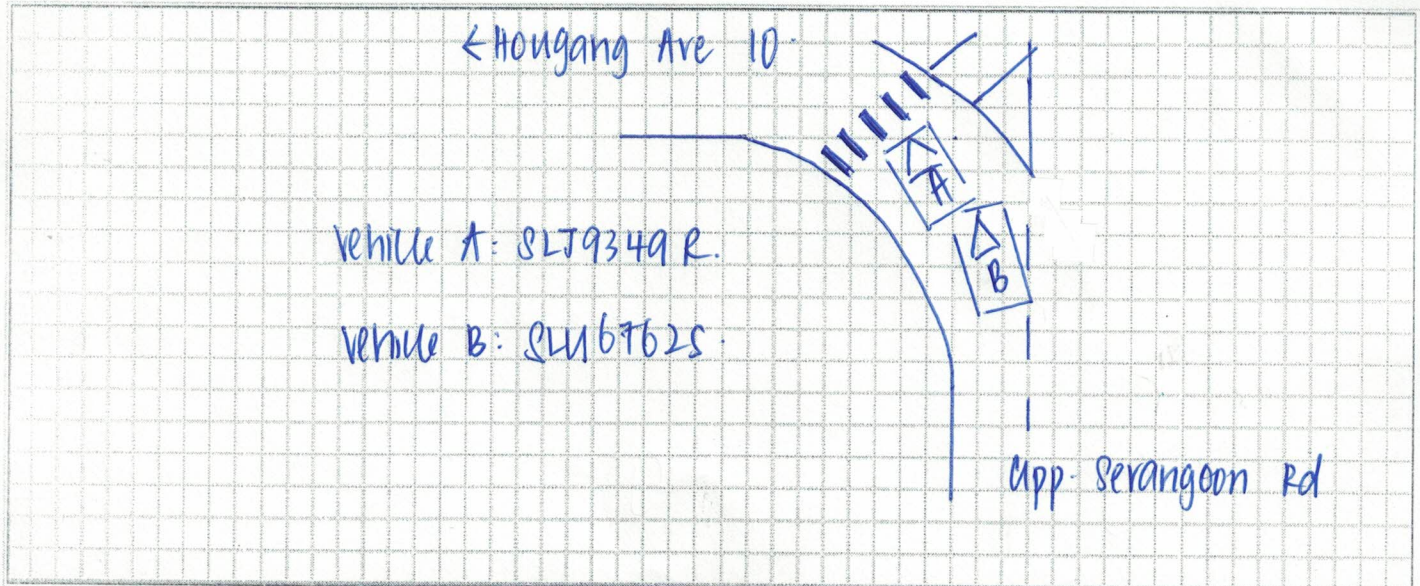 ← Hougang Ave 10.
A
B
Vehicle A: SLJ9349R.
Vehicle B: SLU6762S.
Upp. Serangoon Rd